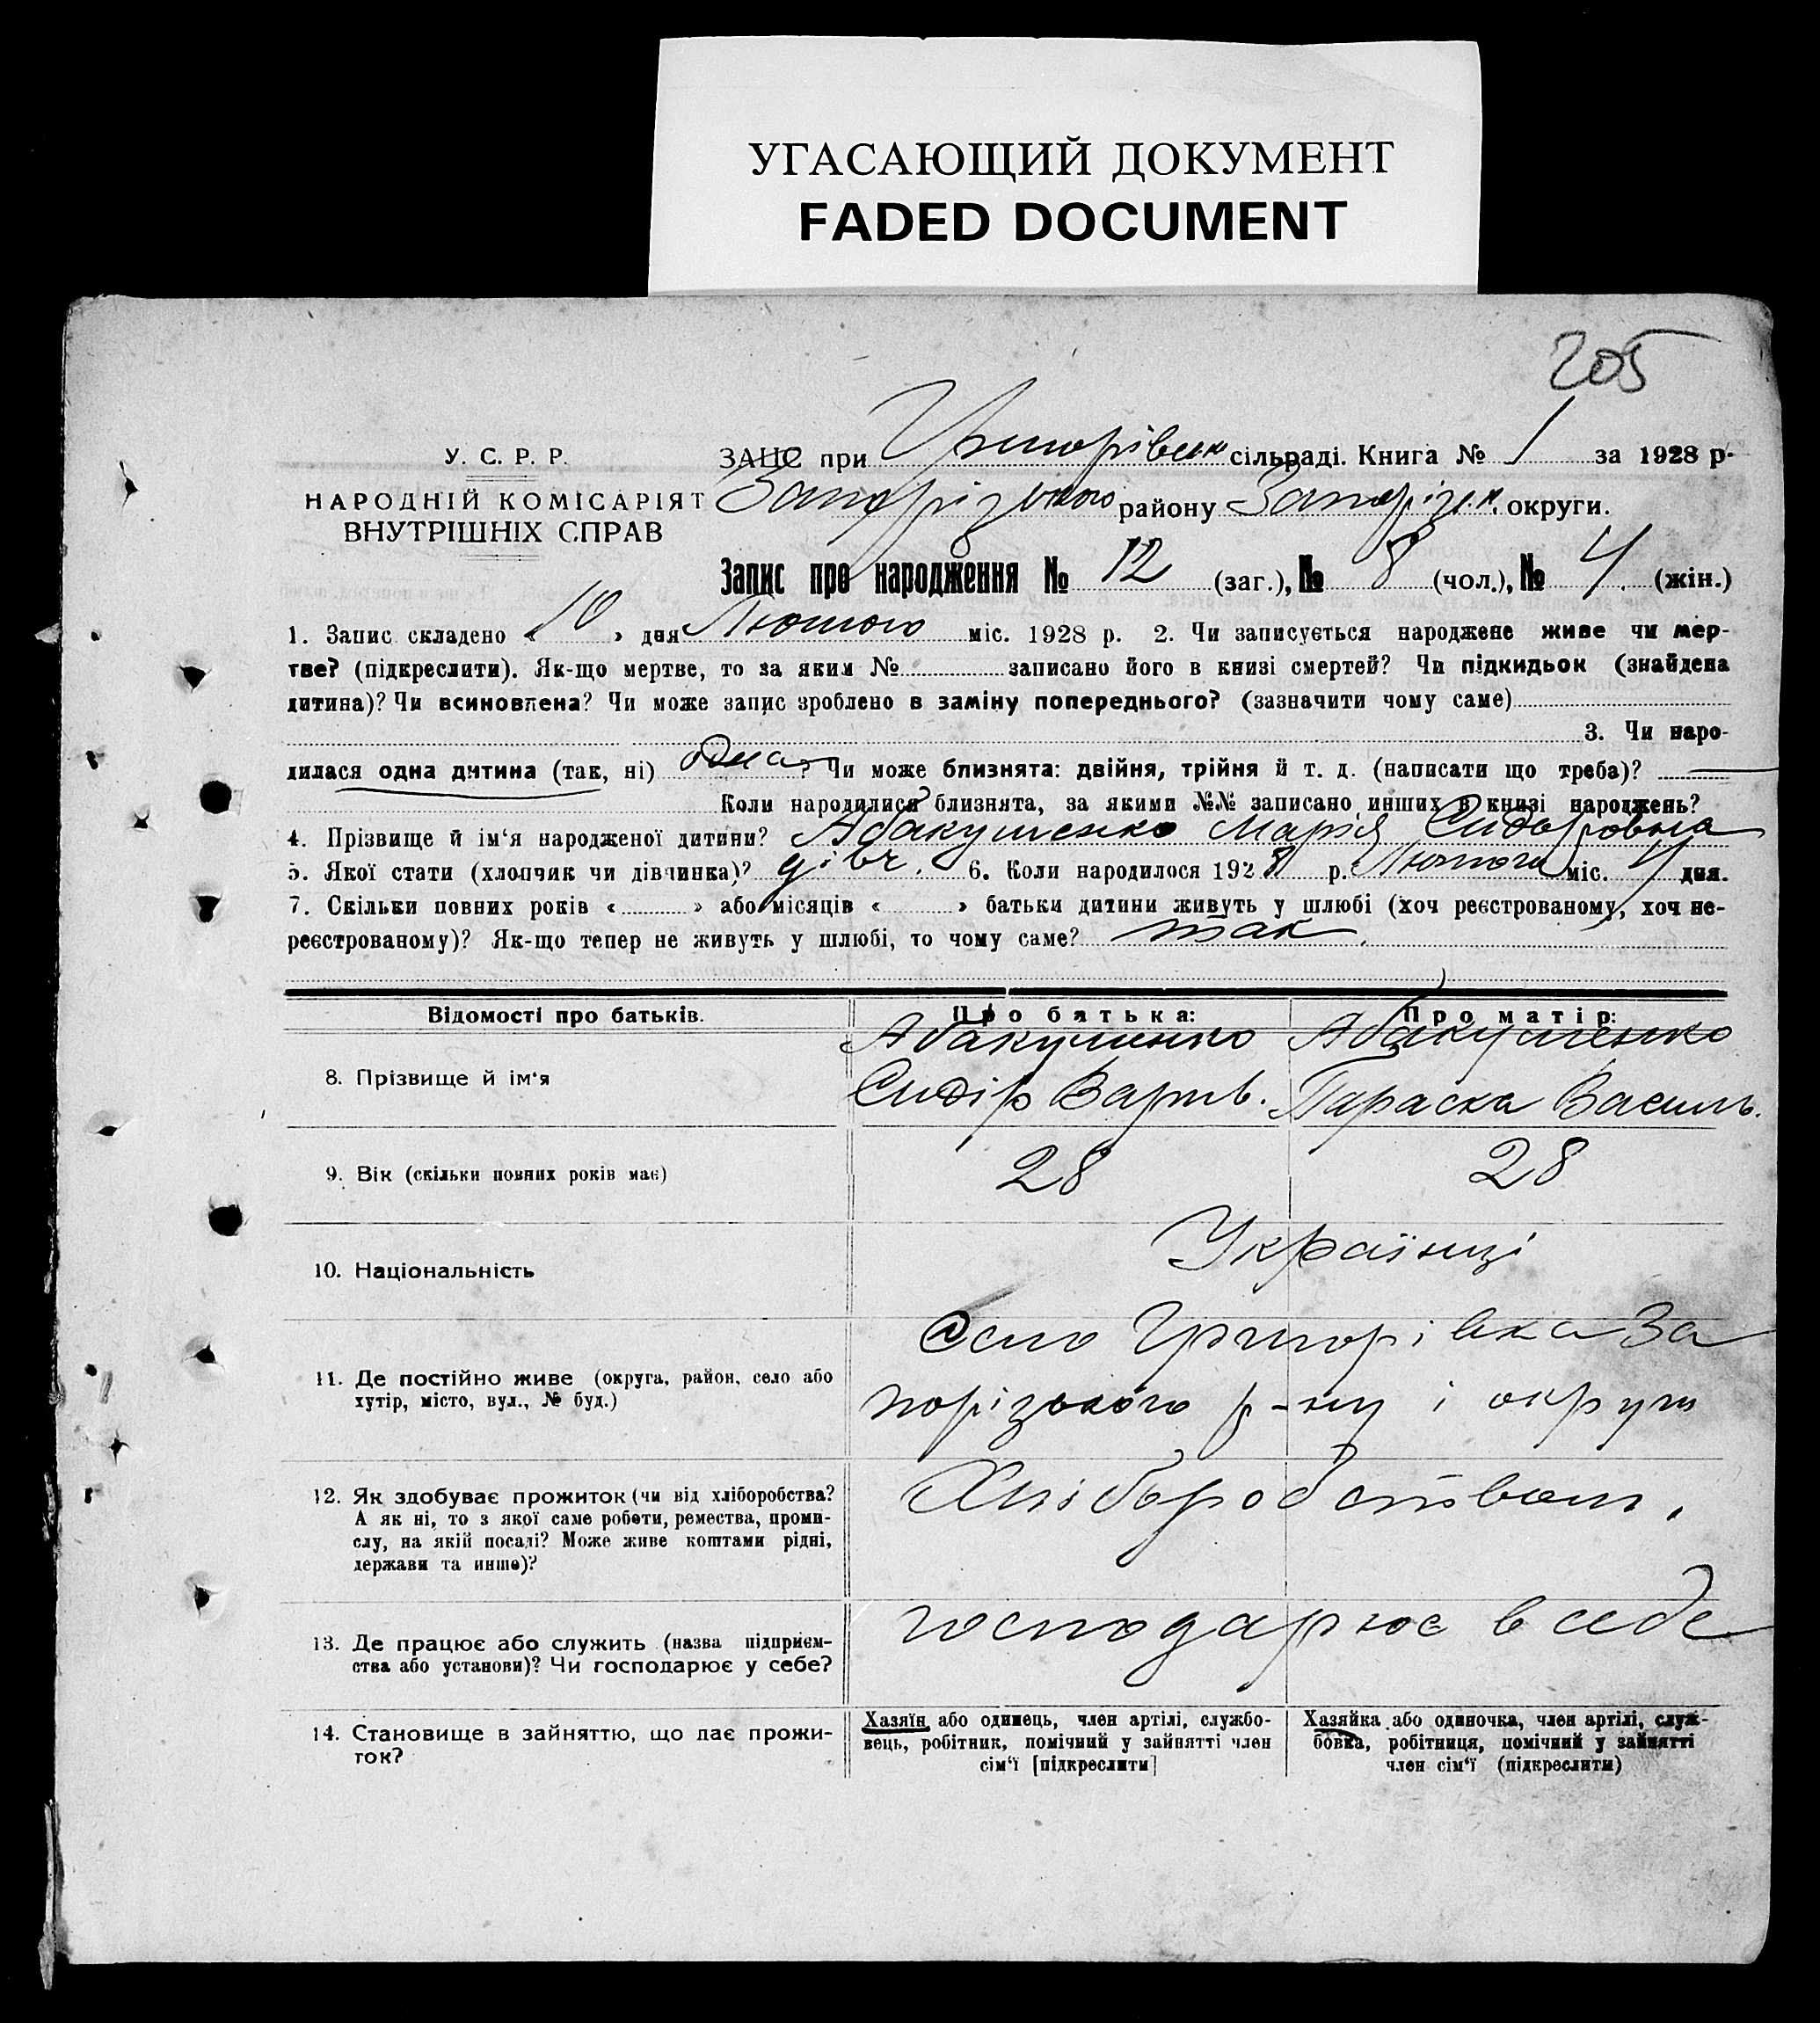 УГАСАЮЩИЙ ДОКУМЕНТ
FADED DOCUMENT
205
У. С. Р. Р.
НАРОДНІЙ КОМІСАРІЯТ
ВНУТРІШНІХ СПРАВ
ЗАЦС при Григорівськ сільраді. Книга № 1 за 1928 р.
Запорізького району Запоріз.к. округи.
Запис про народження № 12 (заг.), № 8 (чол.), № 4 (жін.)
1. Запис складено « 10 » дня Лютого міс. 1928 р. 2. Чи записується народжене живе чи мер-
тве? (підкреслити). Як-що мертве, то за яким № записано його в книзі смертей? Чи підкидьок (знайдена
дитина)? Чи всиновлена? Чи може запис зроблено в заміну попереднього? (зазначити чому саме)
3. Чи наро-
дилася одна дитина (так, ні) одна? Чи може близнята: двійня, трійня й т. д. (написати що треба)? —
Коли народилися близнята, за якими №№ записано инших в книзі народжень?
4. Прізвище й ім‘я народженої дитини? Абакуменко Марія Сидоровна
5. Якої стати (хлопчик чи дівчинка)? дівч. 6. Коли народилося 1928 р. Лютого міс. 4 дня.
7. Скільки повних років « » або місяців « » батьки дитини живуть у шлюбі (хоч реєстрованому, хоч не-
реєстрованому)? Як-що тепер не живуть у шлюбі, то чому саме? так
Відомості про батьків. Про батька: Про матір:
8. Прізвище й ім‘я Абакуменко Абакуменко
Сидір Варив. Параска Василь.
9. Вік (скільки повних років має) 28 28
10. Національність Українці
11. Де постійно живе (округа, район, село або
хутір, місто, вул., № буд.)
Село Григорівка За
порізького р-ну і округи
12. Як здобуває прожиток (чи від хліборобства?
А як ні, то з якої саме роботи, ремества, проми-
слу, на якій посаді? Може живе коштами рідні,
держави та инше)?
Хліборобством.
13. Де працює або служить (назва підприєм-
ства або установи)? Чи господарює у себе?
господарює в себе
14. Становище в зайняттю, що дає прожи-
ток?
Хазяїн або одинець, член артілі, службо-
вець, робітник, помічний у зайнятті член
сім‘ї [підкреслити]
Хазяйка або одиночка, член артілі, служ-
бовка, робітниця, помічний у зайнятті
член сім‘ї (підкреслити)